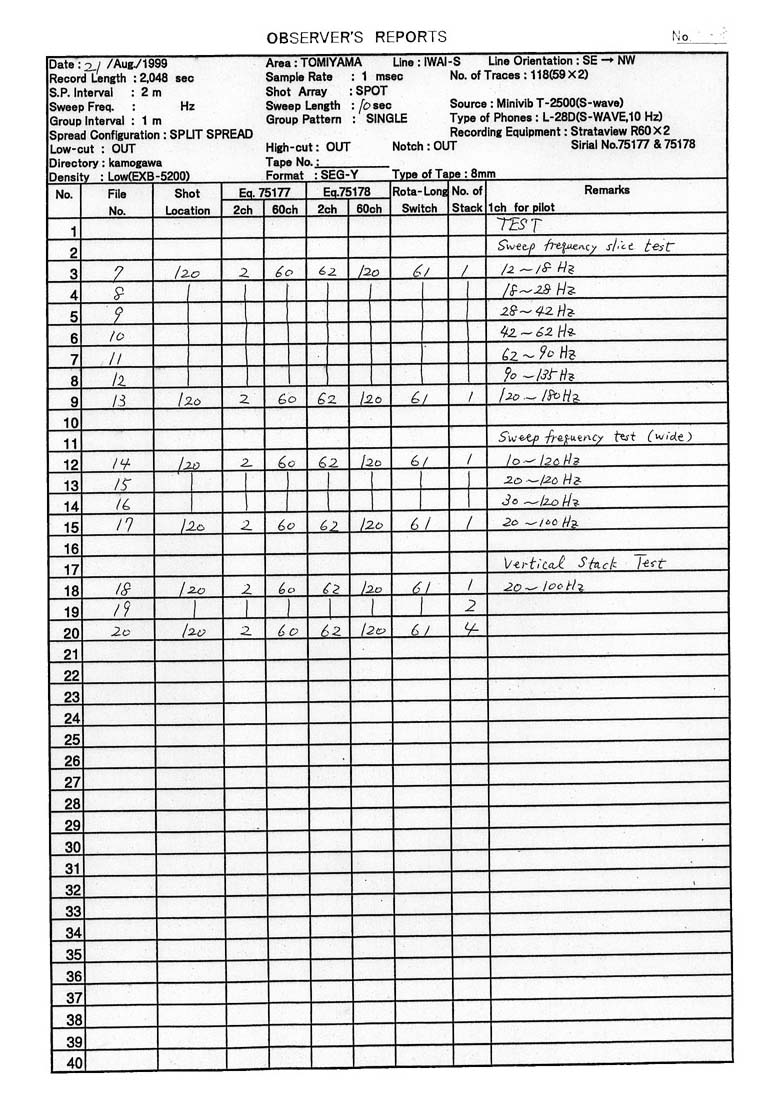 OBSERVER'S REPORTS No.
Date : 21 /Aug./1999 Area : TOMIYAMA Line : IWAI-S Line Orientation : SE → NW
Record Length : 2,048 sec Sample Rate : 1 msec No. of Traces : 118(59×2)
S.P. Interval : 2 m Shot Array : SPOT
Sweep Freq. : Hz Sweep Length : 10 sec Source : Minivib T-2500(S-wave)
Group Interval : 1 m Group Pattern : SINGLE Type of Phones : L-28D(S-WAVE,10 Hz)
Spread Configuration : SPLIT SPREAD Recording Equipment : Strataview R60×2
Low-cut : OUT High-cut : OUT Notch : OUT Sirial No.75177 & 75178
Directory : kamogawa Tape No. :
Density : Low(EXB-5200) Format : SEG-Y Type of Tape : 8mm
No. File Shot Eq. 75177 Eq.75178 Rota-Long No. of Remarks
No. Location 2ch 60ch 2ch 60ch Switch Stack 1ch for pilot
1 TEST
2 Sweep frequency slice test
3 7 120 2 60 62 120 61 1 12~18 Hz
4 8 | | | | | | | 18~28 Hz
5 9 | | | | | | | 28~42 Hz
6 10 | | | | | | | 42~62 Hz
7 11 | | | | | | | 62~90 Hz
8 12 | | | | | | | 90~135 Hz
9 13 120 2 60 62 120 61 1 120~180 Hz
10
11 Sweep frequency test (wide)
12 14 120 2 60 62 120 61 1 10~120 Hz
13 15 | | | | | | | 20~120 Hz
14 16 | | | | | | | 30~120 Hz
15 17 120 2 60 62 120 61 1 20~100 Hz
16
17 Vertical Stack Test
18 18 120 2 60 62 120 61 1 20~100 Hz
19 19 | | | | | | 2
20 20 120 2 60 62 120 61 4
21
22
23
24
25
26
27
28
29
30
31
32
33
34
35
36
37
38
39
40